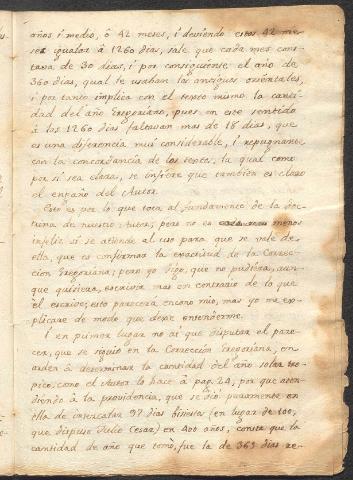 años i medio, ô 42 meses, i deviendo estos 42 me-
ses igualar â 1260 dias, sale que cada mes cons-
tava de 30 dias, i por consiguiente el año de
360 dias, qual le usaban los antiguos orientales,
i por tanto implica con el texto mismo la canti-
dad del año Gregoriano, pues en este sentido
â los 1260 dias faltavan mas de 18 dias, que
es una diferencia mui considerable, i repugnante
con la concordancia de los textos, la qual como
por sî sea clara, se infiere que tambien es claro
el engaño del Autor.
Esto es por lo que toca al fundamento de la Doc-
trina de nuestro Autor; pero no es menos
infeliz si se atiende al uso para que se vale de
ella, que es confirmar la exactitud de la Correc-
cion Gregoriana; pero yo digo, que no pudiera, aun-
que quisiera, escrivir mas en contrario de lo que
êl escrive; esto parecerâ encono mio, mas yo me ex-
plicare de modo que dexe entenderme.
I en primer lugar no ai que disputar el pare-
cer, que se siguiô en la Correccion Gregoriana, en
orden â determinar la cantidad del año solar tro-
pico, como el Autor lo hace â pag. 24, por que aten-
diendo â la providencia, que se diô puramente en
ella de intercalar 97 dias bisiestos (en lugar de 100,
que dispuso Julio Cesar) en 400 años, consta que la
cantidad de año que tomô, fue la de 365 dias